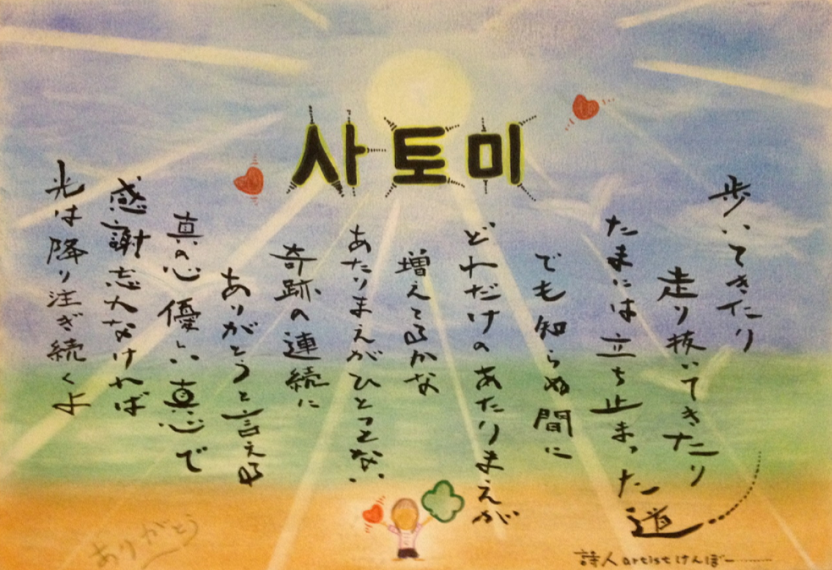 사토미
歩いてきたり
走り抜いてきたり
たまには立ち止まった道
でも知らぬ間に
どれだけのあたりまえが
増えてるかな
あたりまえがひとつもない
奇跡の連続に
ありがとうと言える
真の心 優しい真心で
感謝忘れなければ
光は降り注ぎ続くよ
ありがとう
詩人artistけんぼー